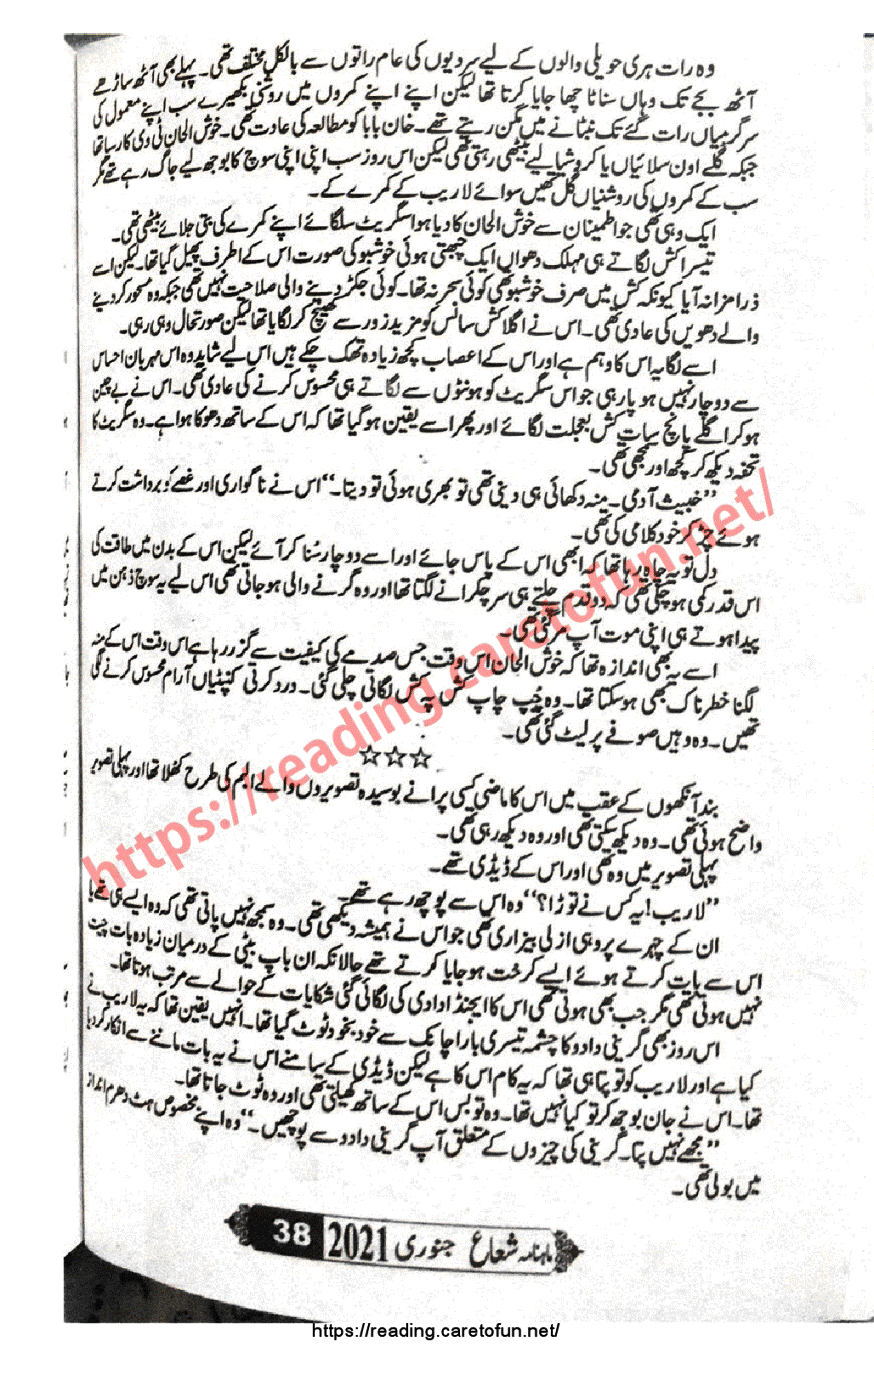 وہ رات ہری حویلی والوں کے لیے سردیوں کی عام راتوں سے بالکل مختلف تھی۔ پہلے بھی آٹھ ساڑھے
آٹھ بجے تک وہاں سناٹا چھا جایا کرتا تھا لیکن اپنے اپنے کمروں میں روشنی بکھیرے سب اپنے معمول کی
سرگرمیاں رات گئے تک نبٹانے میں مگن رہتے تھے۔ خان بابا کو مطالعہ کی عادت تھی۔ خوش الحان ٹی وی کا رسیا تھا
جبکہ گلے اون سلائیاں یا کروشیا لیے بیٹھی رہتی تھی لیکن اس روز سب اپنی اپنی سوچ کا بوجھ لیے جاگ رہے تھے مگر
سب کے کمروں کی روشنیاں گل تھیں سوائے لاریب کے کمرے کے۔
ایک وہی تھی جو اطمینان سے خوش الحان کا دیا ہوا سگریٹ سلگائے اپنے کمرے کی بتی جلائے بیٹھی تھی۔
تیسرا کش لگاتے ہی مہلک دھواں ایک چبھتی ہوئی خوشبو کی صورت اس کے اطراف پھیل گیا تھا۔ لیکن اسے
ذرا مزا نہ آیا کیونکہ کش میں صرف خوشبو تھی کوئی سحر نہ تھا۔ کوئی جکڑ دینے والی صلاحیت نہیں تھی جبکہ وہ مسحور کر دینے
والے دھویں کی عادی تھی۔ اس نے اگلا کش سانس کو مزید زور سے کھینچ کر لگایا تھا لیکن صورتحال وہی رہی۔
اسے لگا یہ اس کا وہم ہے اور اس کے اعصاب کچھ زیادہ تھک چکے ہیں اس لیے شاید وہ اس مہربان احساس
سے دوچار نہیں ہو پا رہی جو اس سگریٹ کو ہونٹوں سے لگاتے ہی محسوس کرنے کی عادی تھی۔ اس نے بے چین
ہو کر اگلے پانچ سات کش بعجلت لگائے اور پھر اسے یقین ہو گیا تھا کہ اس کے ساتھ دھوکا ہوا ہے۔ وہ سگریٹ کا
تحفہ دیکھ کر کچھ اور سمجھی تھی۔
”خبیث آدمی۔ منہ دکھائی ہی دینی تھی تو بھری ہوئی تو دیتا۔“ اس نے ناگواری اور غصے کو برداشت کرتے
ہوئے چڑ کر خودکلامی کی تھی۔
دل تو یہ چاہ رہا تھا کہ ابھی اس کے پاس جائے اور اسے دو چار سُنا کر آئے لیکن اس کے بدن میں طاقت کی
اس قدر کمی ہو چکی تھی کہ دو قدم چلتے ہی سر چکرانے لگتا تھا اور وہ گرنے والی ہو جاتی تھی اس لیے یہ سوچ ذہن میں
پیدا ہوتے ہی اپنی موت آپ مر گئی تھی۔
اسے یہ بھی اندازہ تھا کہ خوش الحان اس وقت جس صدمے کی کیفیت سے گزر رہا ہے اس وقت اس کے منہ
لگنا خطرناک بھی ہو سکتا تھا۔ وہ چپ چاپ کش پہ کش لگاتی چلی گئی۔ درد کرتی کنپٹیاں آرام محسوس کرنے لگی
تھیں۔ وہ وہیں صوفے پر لیٹ گئی تھی۔
☆☆☆
بند آنکھوں کے عقب میں اس کا ماضی کسی پرانے بوسیدہ تصویروں والے البم کی طرح کھلا تھا اور پہلی تصویر
واضح ہوئی تھی۔ وہ دیکھ سکتی تھی اور وہ دیکھ رہی تھی۔
پہلی تصویر میں وہ تھی اور اس کے ڈیڈی تھے۔
”لاریب! یہ کس نے توڑا؟“ وہ اس سے پوچھ رہے تھے۔
ان کے چہرے پر وہی ازلی بیزاری تھی جو اس نے ہمیشہ دیکھی تھی۔ وہ سمجھ نہیں پاتی تھی کہ وہ ایسے ہی تھے یا
اس سے بات کرتے ہوئے ایسے کرخت ہو جایا کرتے تھے حالانکہ ان باپ بیٹی کے درمیان زیادہ بات چیت
نہیں ہوئی تھی مگر جب بھی ہوئی تھی اس کا ایجنڈا دادی کی لگائی گئی شکایات کے حوالے سے مرتب ہوتا تھا۔
اس روز بھی گرینی دادو کا چشمہ تیسری بار اچانک سے خود بخود ٹوٹ گیا تھا۔ انہیں یقین تھا کہ یہ لاریب نے
کیا ہے اور لاریب کو تو پتا ہی تھا کہ یہ کام اس کا ہے لیکن ڈیڈی کے سامنے اس نے یہ بات ماننے سے انکار کر دیا
تھا۔ اس نے جان بوجھ کر تو کیا نہیں تھا۔ وہ تو بس اس کے ساتھ کھیلتی تھی اور وہ ٹوٹ جاتا تھا۔
”مجھے نہیں پتا۔ گرینی کی چیزوں کے متعلق آپ گرینی دادو سے پوچھیں۔“ وہ اپنے مخصوص ہٹ دھرم انداز
میں بولی تھی۔
ماہنامہ شعاع جنوری 2021 38
https://reading.caretofun.net/
https://reading.caretofun.net/